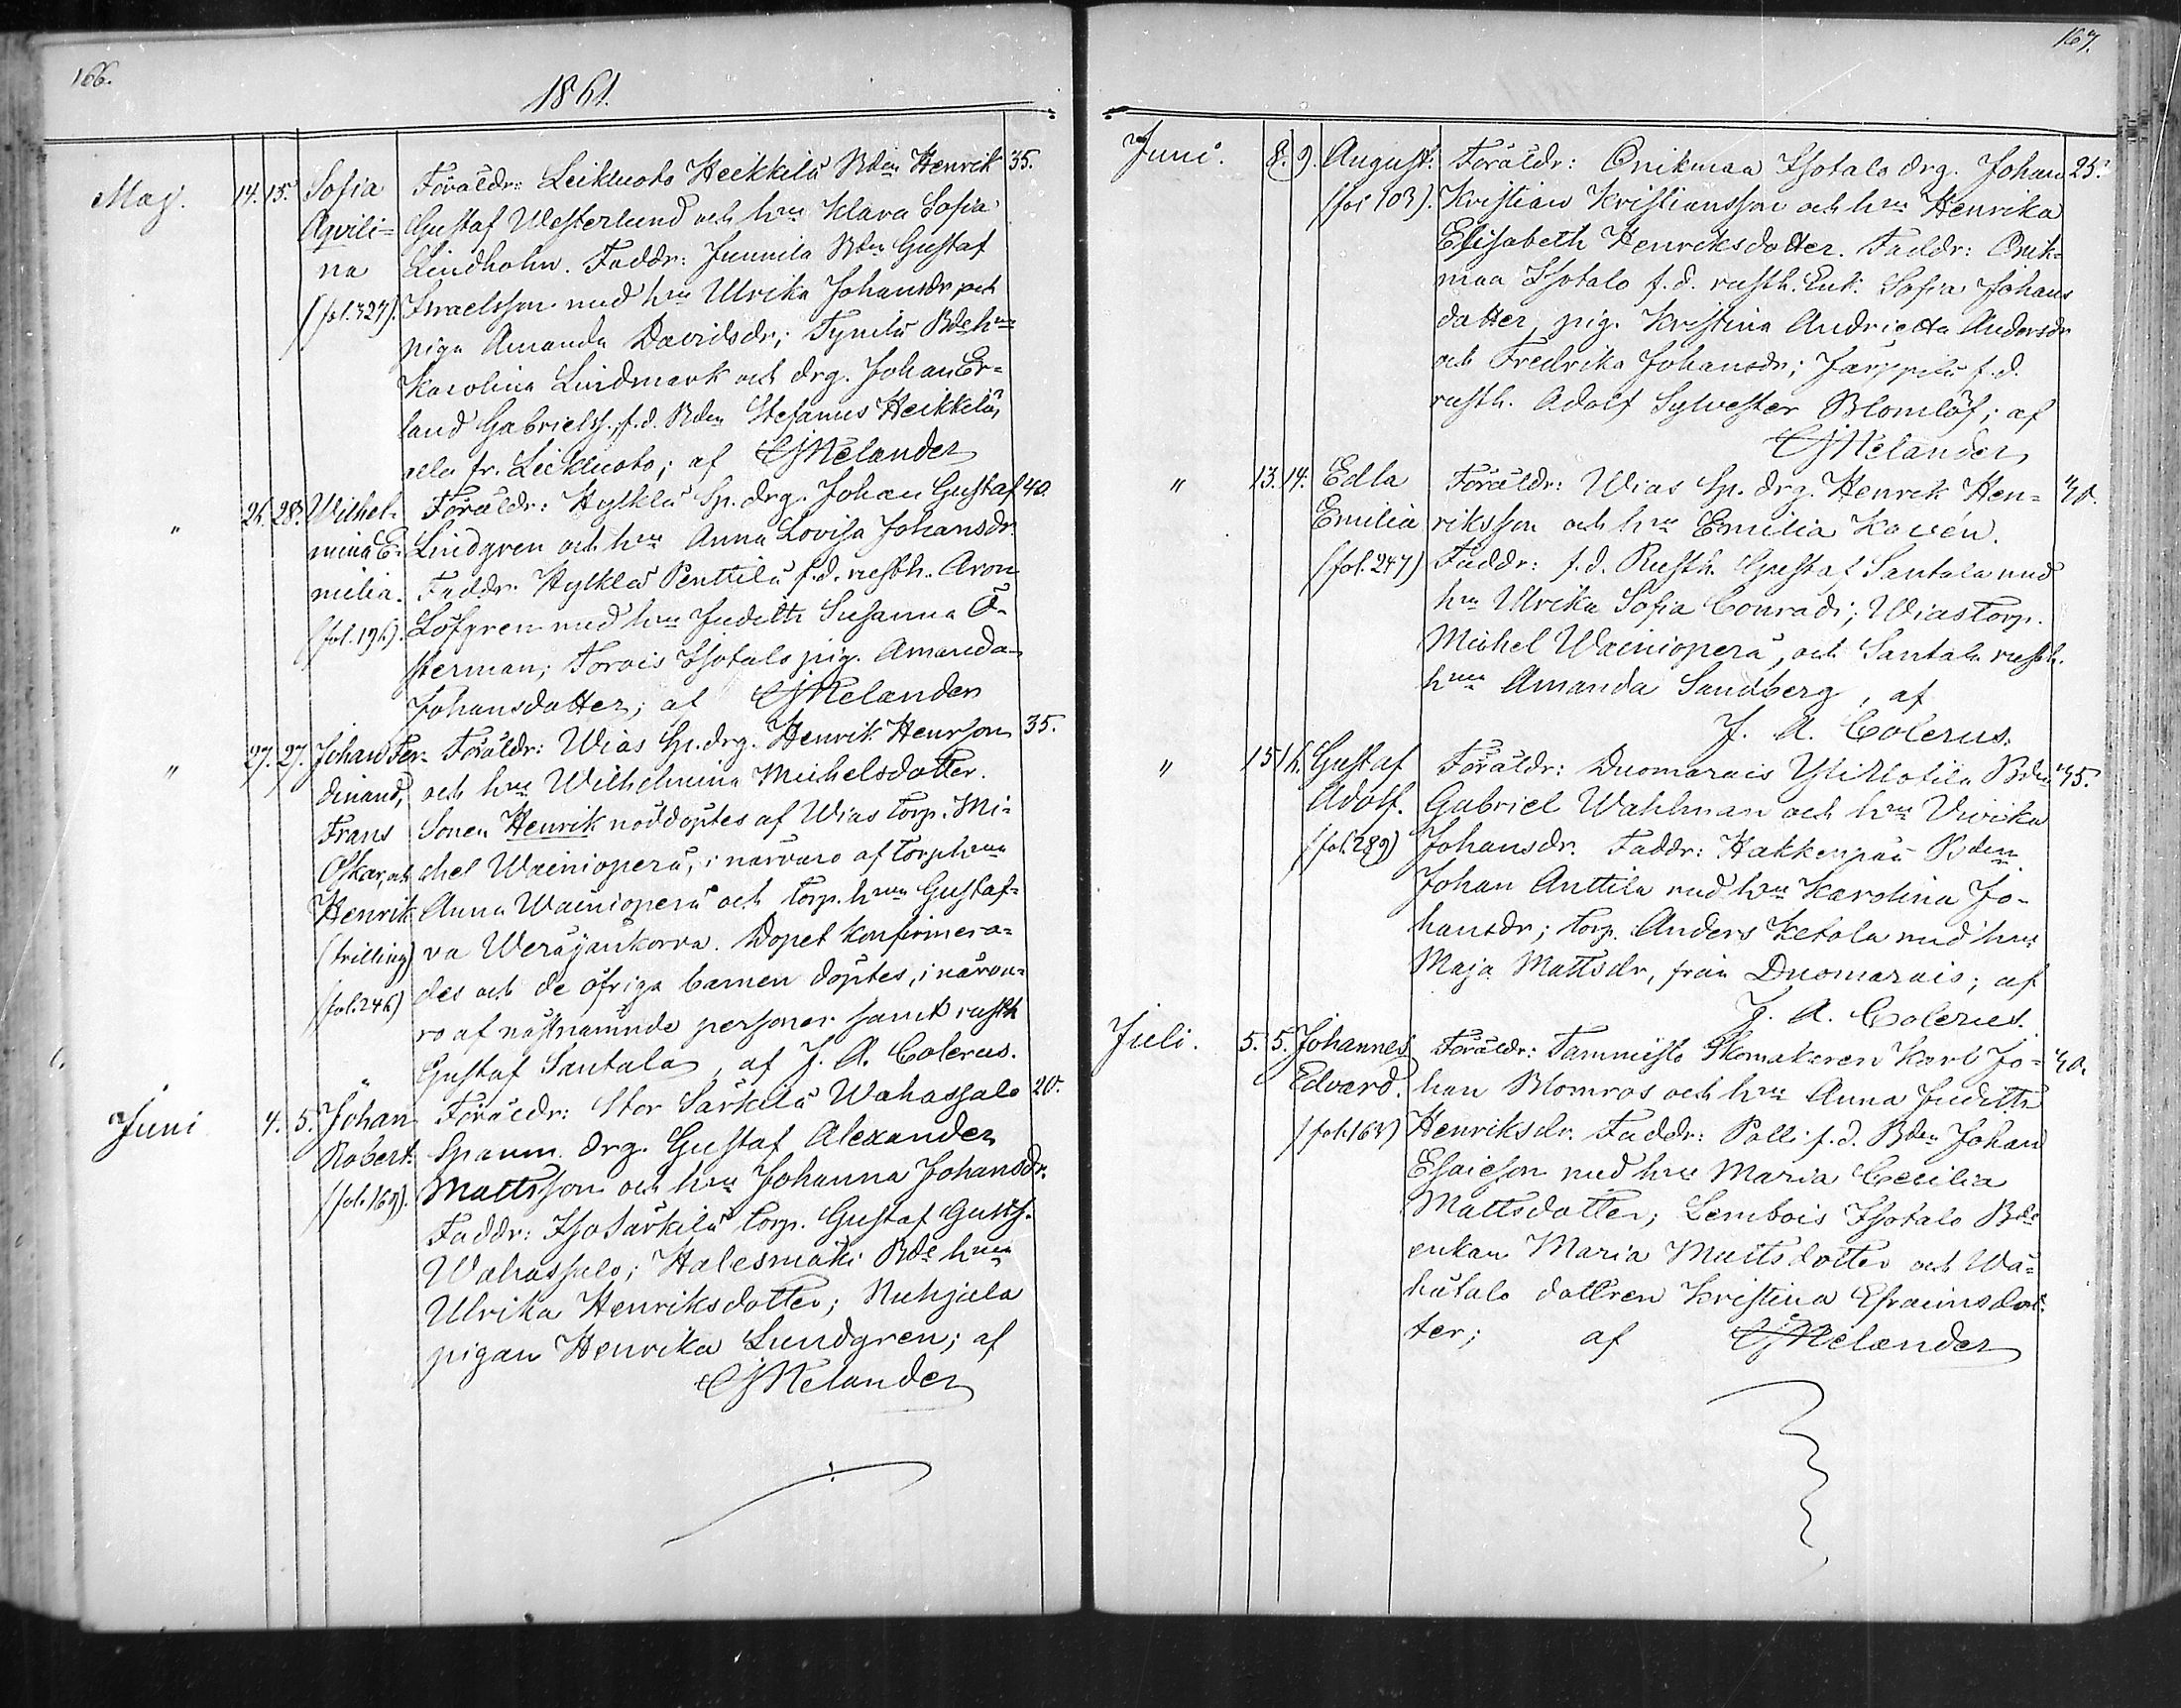 166.
1861.
Maj. 14. 15. Sofia Föräldr: Leikluoto Heikkilä Bden Henrik 35.
Aqvili= Gustaf Westerlund och hu Klara Sofia
na Lindholm. Faddr: Junnila Bden Gustaf
(fol. 327). Israelsson med hu Ulrika Johansdr och
piga Amanda Davidsdr; Tynilä Bde hu
Karolina Lindmark och drg. Johan Er=
land Gabrielss., f.d. Bden Stefanus Heikkilä,
alla fr. Leikluoto; af CJMelander
" 26. 28. Wilhel= Föräldr: Hylklä Sp. drg. Johan Gustaf 40.
mina E= Lindgren och hu Anna Lovisa Johansdr.
milia. Faddr. Hylklä Penttilä f.d. rusth. Aron
(fol. 196). Löfgren med hu Judith Susanna Ö=
sterman; Torais Isotalo pig. Amanda
Johansdotter; af CJMelander
" 27. 27. Johan Fer= Föräldr: Wias Sp. drg. Henrik Henrsson 35.
dinand, och hu Wilhelmina Michelsdotter.
Frans Sonen Henrik nöddöptes af Wias Torp. Mi=
Oskar, och chel Wainioperä, i närvaro af Torp hun
Henrik Anna Wainioperä och Torp. hun Gustaf=
(trilling) va Weräjänkorva. Dopet konfirmera=
(fol. 246) des och de öfriga barnen döptes, i närva=
ro af nästnämnde personer samt rusth
Gustaf Santala, af J. A. Colerus.
Juni 4. 5. Johan Föräldr: Stor Särkilä Wahassalo 20.
Robert. Spanm. drg. Gustaf Alexander
(fol. 169). Mattsson och hu Johanna Johansdr.
Faddr: Isosärkilä Torp. Gustaf Gustfs.
Wahassalo; Halesmäki Bde hun
Ulrika Henriksdotter; Ruhjala
pigan Henrika Lundgren; af
CJMelander
167.
Juni. 8. 9. August. Föräldr: Onikmaa Isotalo drg. Johan 25.
(fol 103). Kristian Kristiansson och hu Henrika
Elisabeth Henriksdotter. Faddr: Onik=
maa Isotalo f.d. rusth. Enk. Sofia Johans
dotter, pig. Kristina Andrietta Andersdr
och Fredrika Johansdr; Jäppilä f.d.
rusth. Adolf Sylvester Blomlöf; af
CJMelander
" 13. 14. Edla Föräldr: Wias Sp. drg. Henrik Hen= 40.
Emilia riksson och hu Emilia Kovén.
(fol. 247) Faddr: f.d. Rusth. Gustaf Santala med
hu Ulrika Sofia Conradi; Wias Torp.
Michel Wainioperä, och Santala rusth.
hun Amanda Sandberg, af
J. A. Colerus.
" 15 16. Gustaf Föräldr: Duomarais Yli Uotila Bden 45.
Adolf. Gabriel Wahlman och hu Vivika
(fol. 289) Johansdr. Faddr: Hakkenpää Bden
Johan Anttila med hu Karolina Jo=
hansdr; Torp. Anders Ketola med hu
Maja Mattsdr, från Duomarais; af
J. A. Colerus.
Juli. 5. 5. Johannes Föräldr: Tammisto Skomakaren Karl Jo= 40.
Edvard. han Blomros och hu Anna Judith
(fol. 163) Henriksdr. Faddr: Palli f.d. Bden Johan
Esaieson med hu Maria Cecilia
Mattsdotter; Lembois Isotalo Bde
enkan Maria Mattsdotter och Wä=
hätalo dottren Kristina Efraimsdot=
ter; af CJMelander